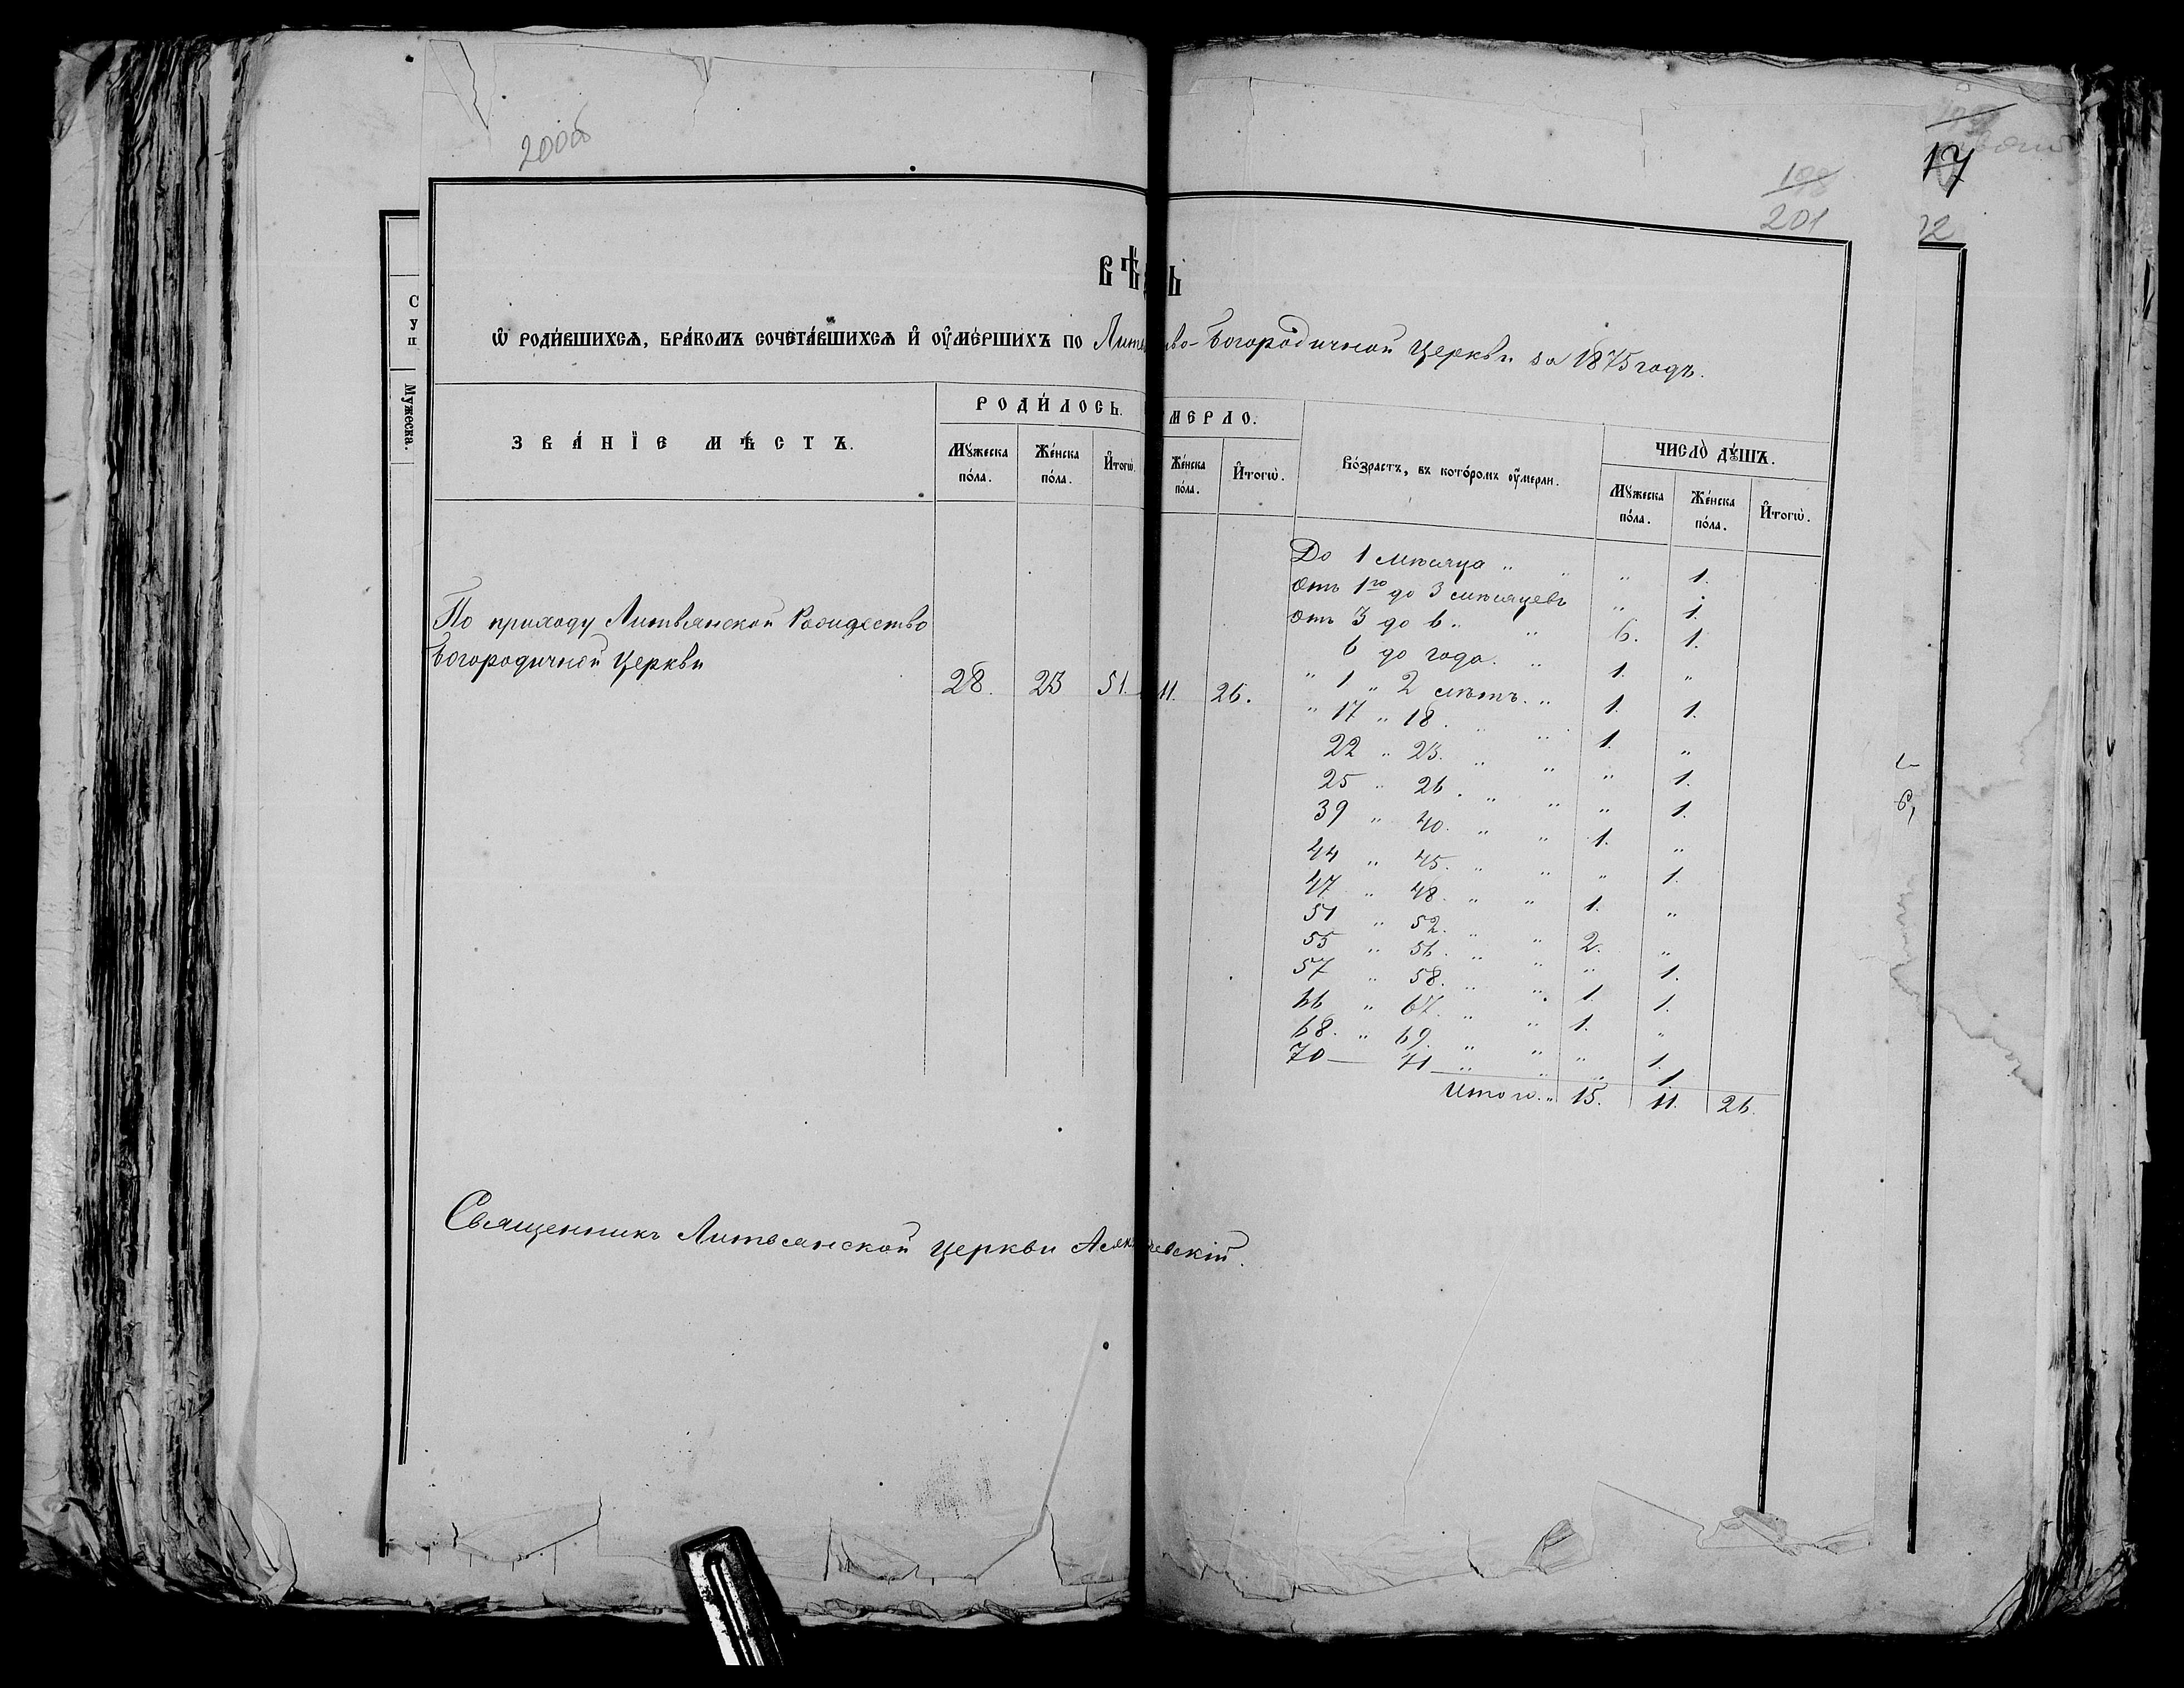 200об
198
201
17
22
ВѢ Ь
Ѡ РОДИ́ВШИХСѦ, БРА́КОМЪ СОЧЕТА́ВШИХСѦ И҆ ОУ҆МЕ́РШИХЪ ПО во-Богородичной Церкви за 1875 годъ.
ЗВА́НЇЕ МѢ́СТЪ.
РОДИ́ЛОСЬ.
МЕРЛО.
Мꙋ́жеска по́ла.
Же́нска по́ла.
И҆тогѡ̀.
Же́нска по́ла.
И҆тогѡ̀.
Во́зрастъ, въ кото́ромъ оу҆́мерли.
ЧИСЛО̀ ДꙊ́ШЪ.
Мꙋ́жеска по́ла.
Же́нска по́ла.
И҆тогѡ̀.
С
У
П
Мужеска.
По приходу Литвянской Рождество
Богородичной Церкви
28. 23 51. 11. 26.
До 1 мѣсяца " " " 1.
Отъ 1го до 3 мѣсяцевъ " 1.
Отъ 3 до 6 " " 6. 1.
6 до года. " 1. "
" 1 " 2 лѣтъ. " 1. 1.
" 17 " 18. " " 1. "
22 " 23. " " " 1.
25 " 26. " " " 1.
39 " 40. " " 1. "
44 " 45. " " " 1.
47 " 48. " " 1. "
51 " 52. " " 2. "
55 " 56. " " " 1.
57 " 58. " " 1. 1.
66 " 67. " " 1. "
68. " 69. " " " 1.
70 — 71 " " " 1.
Итого. " 15. 11. 26.
Священникъ Литвянской церкви